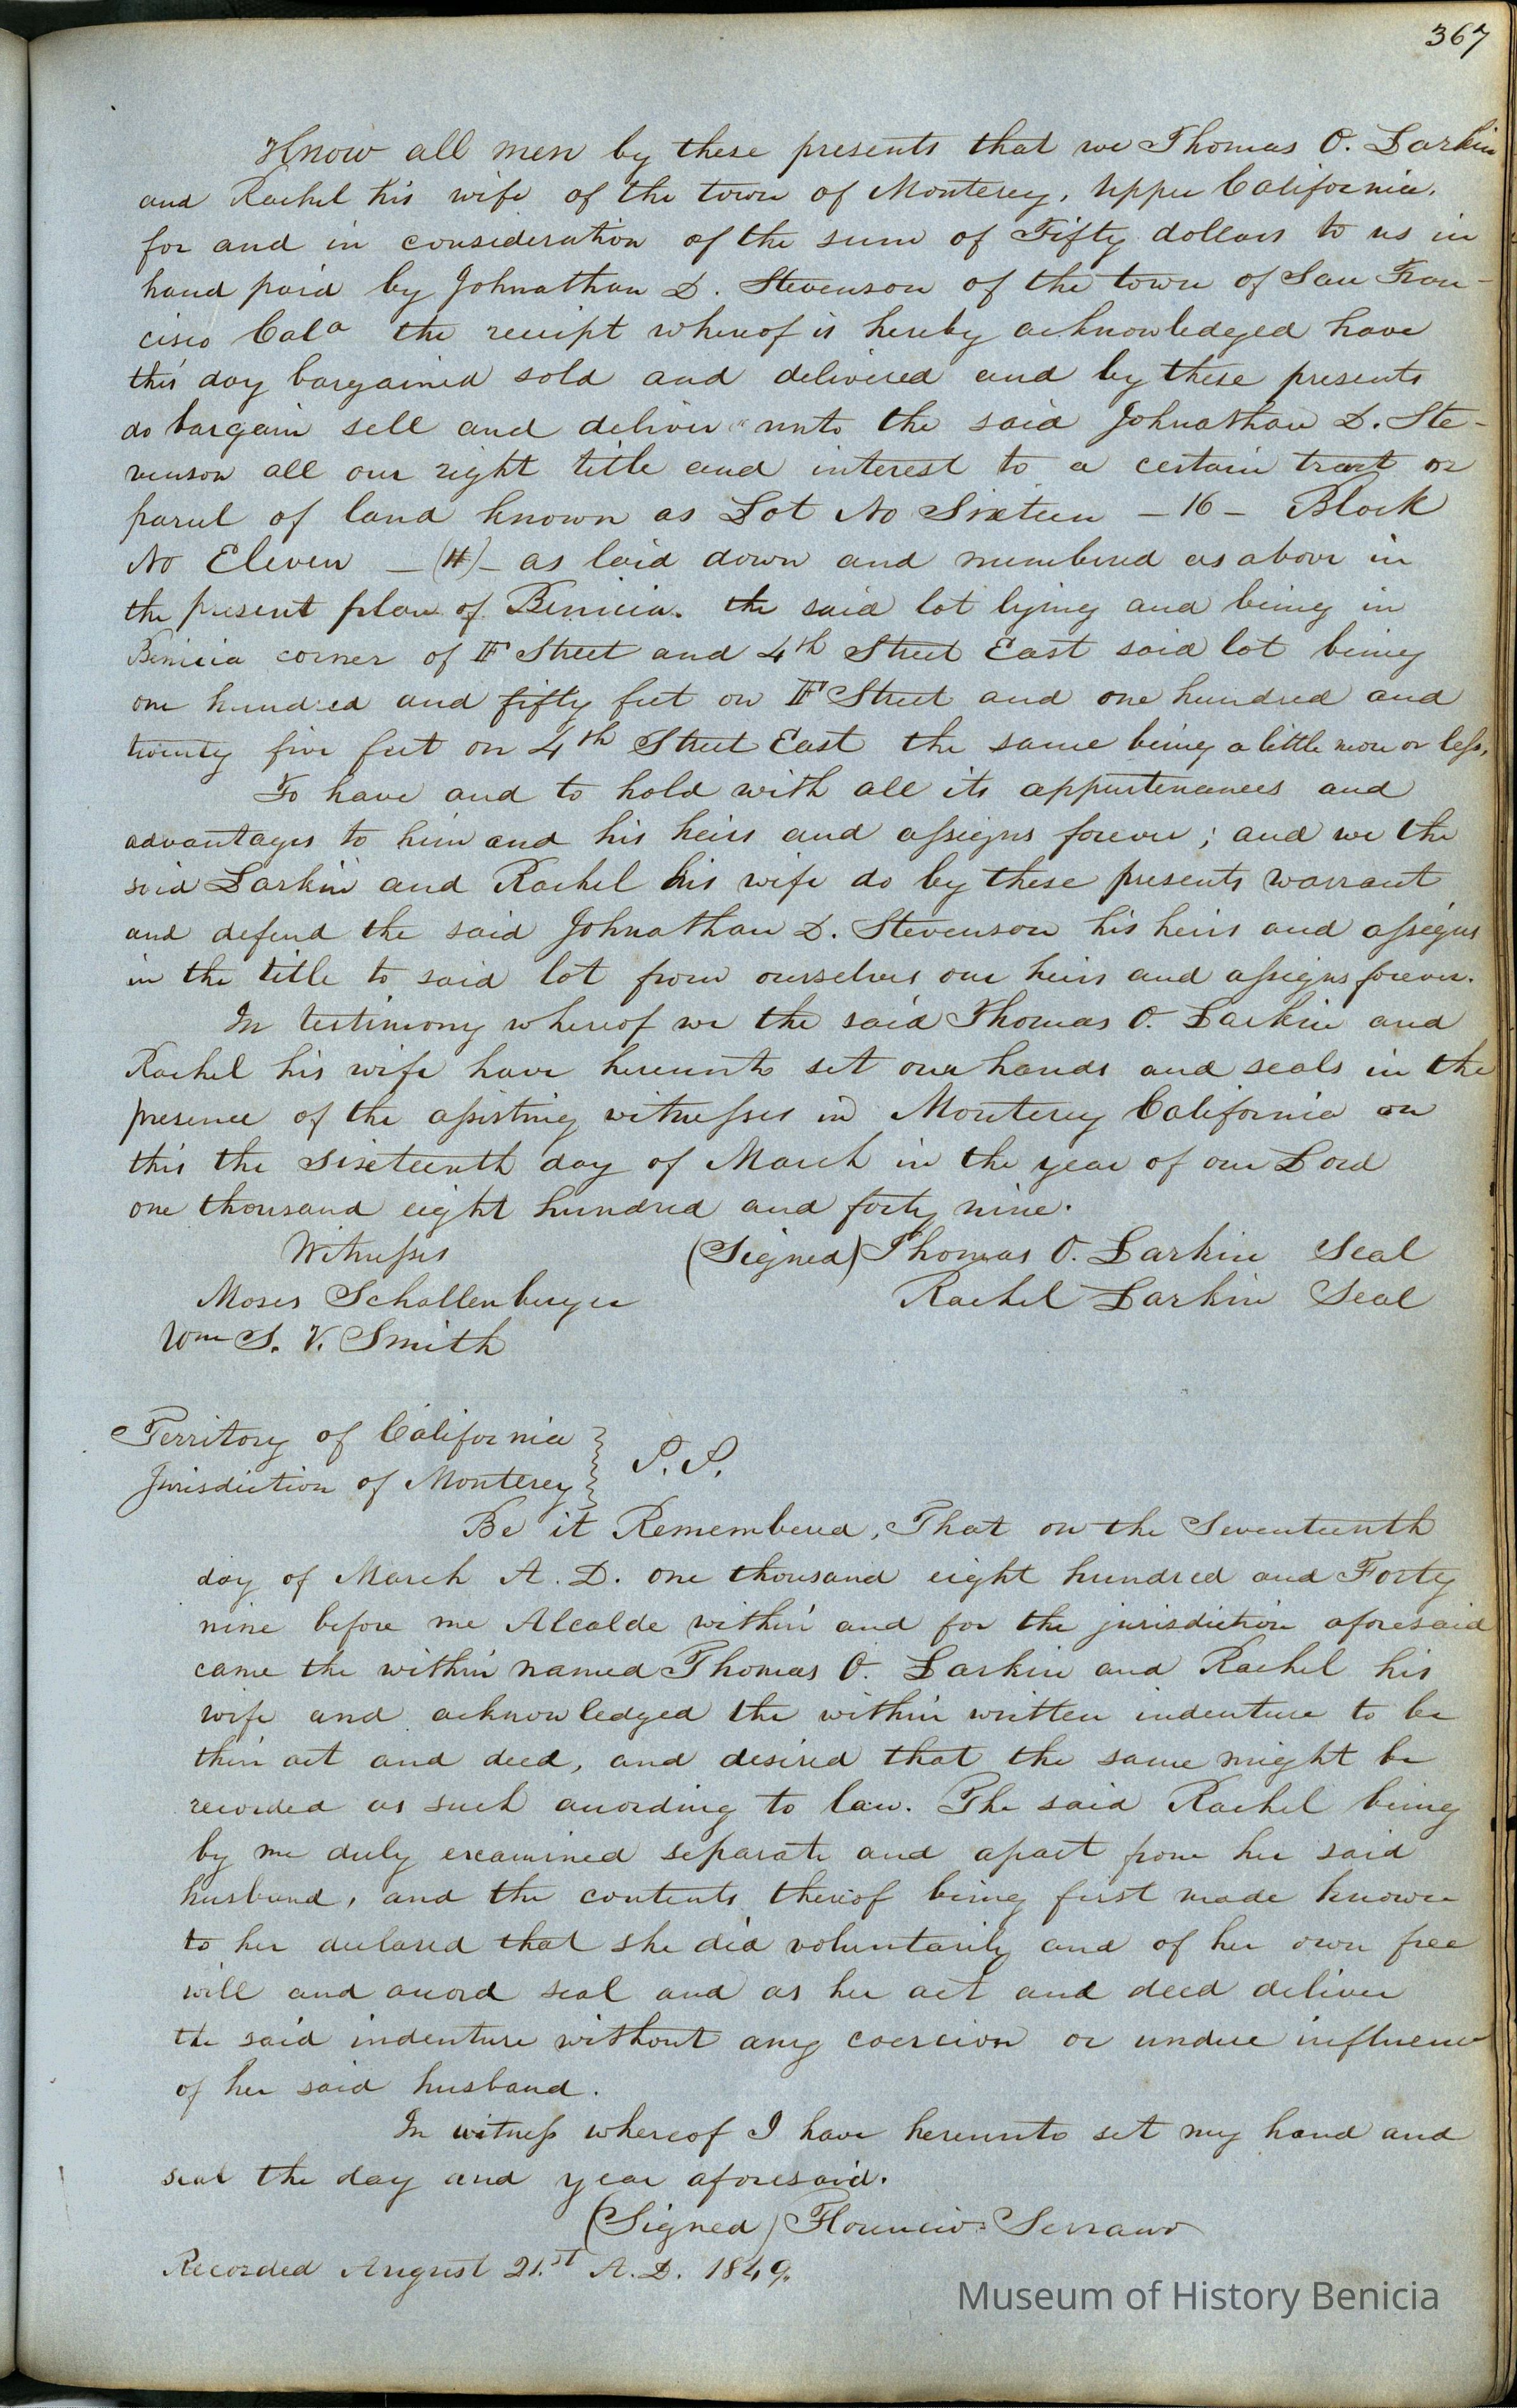 367
Know all men by these presents that we Thomas O. Larkin
and Rachel his wife of the town of Monterey, Upper California.
for and in consideration of the sum of Fifty dollars to us in
hand paid by Johnathan D. Stevenson of the town of San Fran-
cisco Cala the receipt whereof is hereby acknowledged have
this day bargained sold and delivered and by these presents
do bargain sell and deliver unto the said Johnathan D. Ste-
venson all our right title and interest to a certain tract or
parcel of land known as Lot No Sixteen - 16 - Block
No Eleven - (11) - as laid down and numbered as above in
the present plan of Benicia. the said lot lying and being in
Benicia corner of F Street and 4th Street East said lot being
one hundred and fifty feet on F Street and one hundred and
twenty five feet on 4th Street East the same being a little more or less,
To have and to hold with all its appurtenances and
advantages to him and his heirs and assigns forever; and we the
said Larkin and Rachel his wife do by these presents warrant
and defend the said Johnathan D. Stevenson his heirs and assigns
in the title to said lot from ourselves our heirs and assigns forever.
In testimony whereof we the said Thomas O. Larkin and
Rachel his wife have hereunto set our hands and seals in the
presence of the assisting witnesses in Monterey California on
this the sixteenth day of March in the year of our Lord
one thousand eight hundred and forty nine.
Witnesses (Signed) Thomas O. Larkin Seal
Moses Schallenberger Rachel Larkin Seal
Wm S. V. Smith
Territory of California
Jurisdiction of Monterey } S.S.
Be it Remembered, That on the Seventeenth
day of March A. D. one thousand eight hundred and Forty
nine before me Alcalde within and for the jurisdiction aforesaid
came the within named Thomas O. Larkin and Rachel his
wife and acknowledged the within written indenture to be
their act and deed, and desired that the same might be
recorded as such according to law. The said Rachel being
by me duly examined separate and apart from her said
husband, and the contents thereof being first made known
to her declared that she did voluntarily and of her own free
will and accord seal and as her act and deed deliver
the said indenture without any coercion or undue influence
of her said husband.
In witness whereof I have hereunto set my hand and
seal the day and year aforesaid.
(Signed) Florencio Serrano
Recorded August 21.st A. D. 1849.
Museum of History Benicia